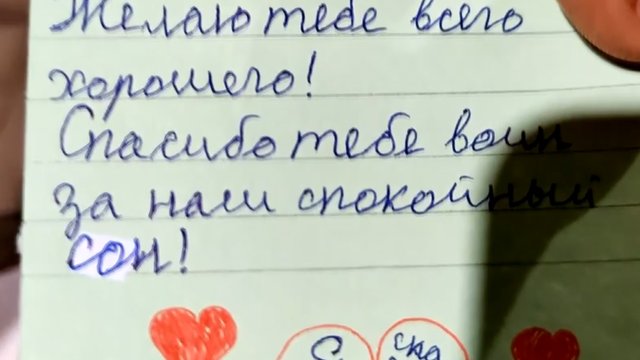 Желаю тебе всего
хорошего!
Спасибо тебе воин
за наш спокойный
сон!
С
ска